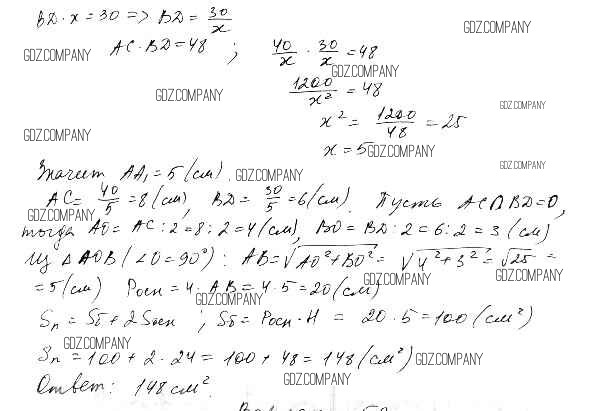 BD · x = 30 => BD = 30/x
GDZ.COMPANY
GDZ.COMPANY
AC · BD = 48 ; 40/x · 30/x = 48
GDZ.COMPANY
GDZ.COMPANY
1200/x² = 48
GDZ.COMPANY
x² = 1200/48 = 25
GDZ.COMPANY
x = 5
GDZ.COMPANY
GDZ.COMPANY
Значит AA₁ = 5 (см).
GDZ.COMPANY
AC = 40/5 = 8 (см), BD = 30/5 = 6 (см). Пусть AC∩BD=O,
GDZ.COMPANY
тогда AO = AC : 2 = 8 : 2 = 4 (см), BO = BD : 2 = 6 : 2 = 3 (см)
Из △AOB (∠O = 90°) : AB = √AO² + BO² = √4² + 3² = √25 =
GDZ.COMPANY
GDZ.COMPANY
= 5 (см) Pосн = 4 · AB = 4 · 5 = 20 (см)
GDZ.COMPANY
Sп = Sб + 2Sосн ; Sб = Pосн · H = 20 · 5 = 100 (см²)
GDZ.COMPANY
Sп = 100 + 2 · 24 = 100 + 48 = 148 (см²)
GDZ.COMPANY
Ответ: 148 см².
GDZ.COMPANY